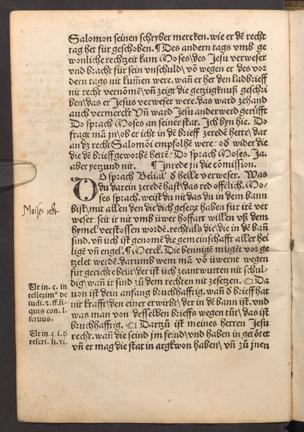 Salomon seinen schryber mercken. wie er dē recht
tag het für geschoben. ¶ Des andern tags vmb ge
wonliche rechtzeit kam Moses/des Jesu verweser
vnd bracht für sein vnschuld/ vō wegen er des vor
dern tags nit kum̄en were. wan̄ er het den ladbrieff
nit recht vernōmē/vn̄ zeigt die gezügknuß geschri
ben/das er Jesus verweser were. das ward zehand
auch vermerckt Vn̄ ward Jesu anderwerd gerüfft
Do sprach Moses an seiner stat. Ich byn hie. Do
fragt mā jn/ob er icht in dē brieff zeredē herte/
an dz recht Salomōi empfolhē were/ od' wider die
die dē brieff geworbē hette: Do sprach Moses. Ja.
aber yetzund nit. ¶ Jnrede in die cōmission.
DO sprach Belial/ d' helle verweser. Was
du darein zeredē hast/das red offēlich. Mo
ses sprach. weist du nit das du in dem bann
bist/mit allen den die dich gesetzt haben für irē ver
weser. seit ir nit vmb üwer hoffart willen vß dem
hymel verstossen wordē. rechtals die/die in dē bān
sind. vn̄ üch ist genōmē die gemeinschafft aller hei
lige vn̄ engel. ¶ Merck. Die bennige müget vor ge
zelet werdē. darumb wem mā vō üwernt wegen
für gericht beüt/der ist üch zeantwurten nit schul-
dig/wan̄ ir sind zū dem rechten nit zesetzen. ¶ Da
uon ist dein anfang bruchhafftig. wan̄ d' brieff hat
nit krafft/den einer erwirbt/der in dē bann ist. vnd
was man von desselben brieffs wegen tůt/ das ist
bruchhafftig. ¶ Dartzů ist meines herren Jesu
recht. wan̄ die feind jm feind/vnd haben in getōret
vn̄ er mag die stat in argkwon haben/ vn̄ zů jnen
Moises
Ut in. c. in
tellexim⁹ de
iudi. 2. ff. li
quis con. l.
seruus.
Ut in. c. i. d
rescri. li. vi.